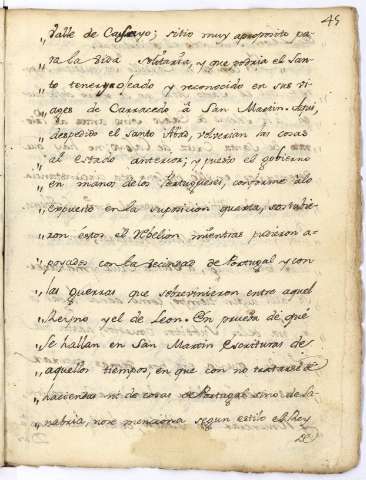 45
„ Valle de Casayo; sitio muy aproposito pa-
„ ra la vida solitaria, y que podria el San-
„ to tener visitado y reconocido en sus vi
„ ages de Carracedo à San Martin. Aqui,
„ despedido el Santo Abad, volverian las cosas
„ al estado anterior; y puesto el govierno
„ en manos delos Portugueses, conforme àlo
„ expuesto en la suposicion quarta, sostubie-
„ ron estos el mientras pudieron a-
„ poyados con la vecindad de Portugal y con
„ las guerras que sobrevinieron entre aquel
„ Reyno y el de Leon. En prueba de que
„ se hallan en San Martin Escrituras de
„ aquellos tiempos, en que con no tratarse de
„ haciendas ni de cosas de Portugal sino de Sa-
„ nabria, no se menciona segun estilo el Rey
de